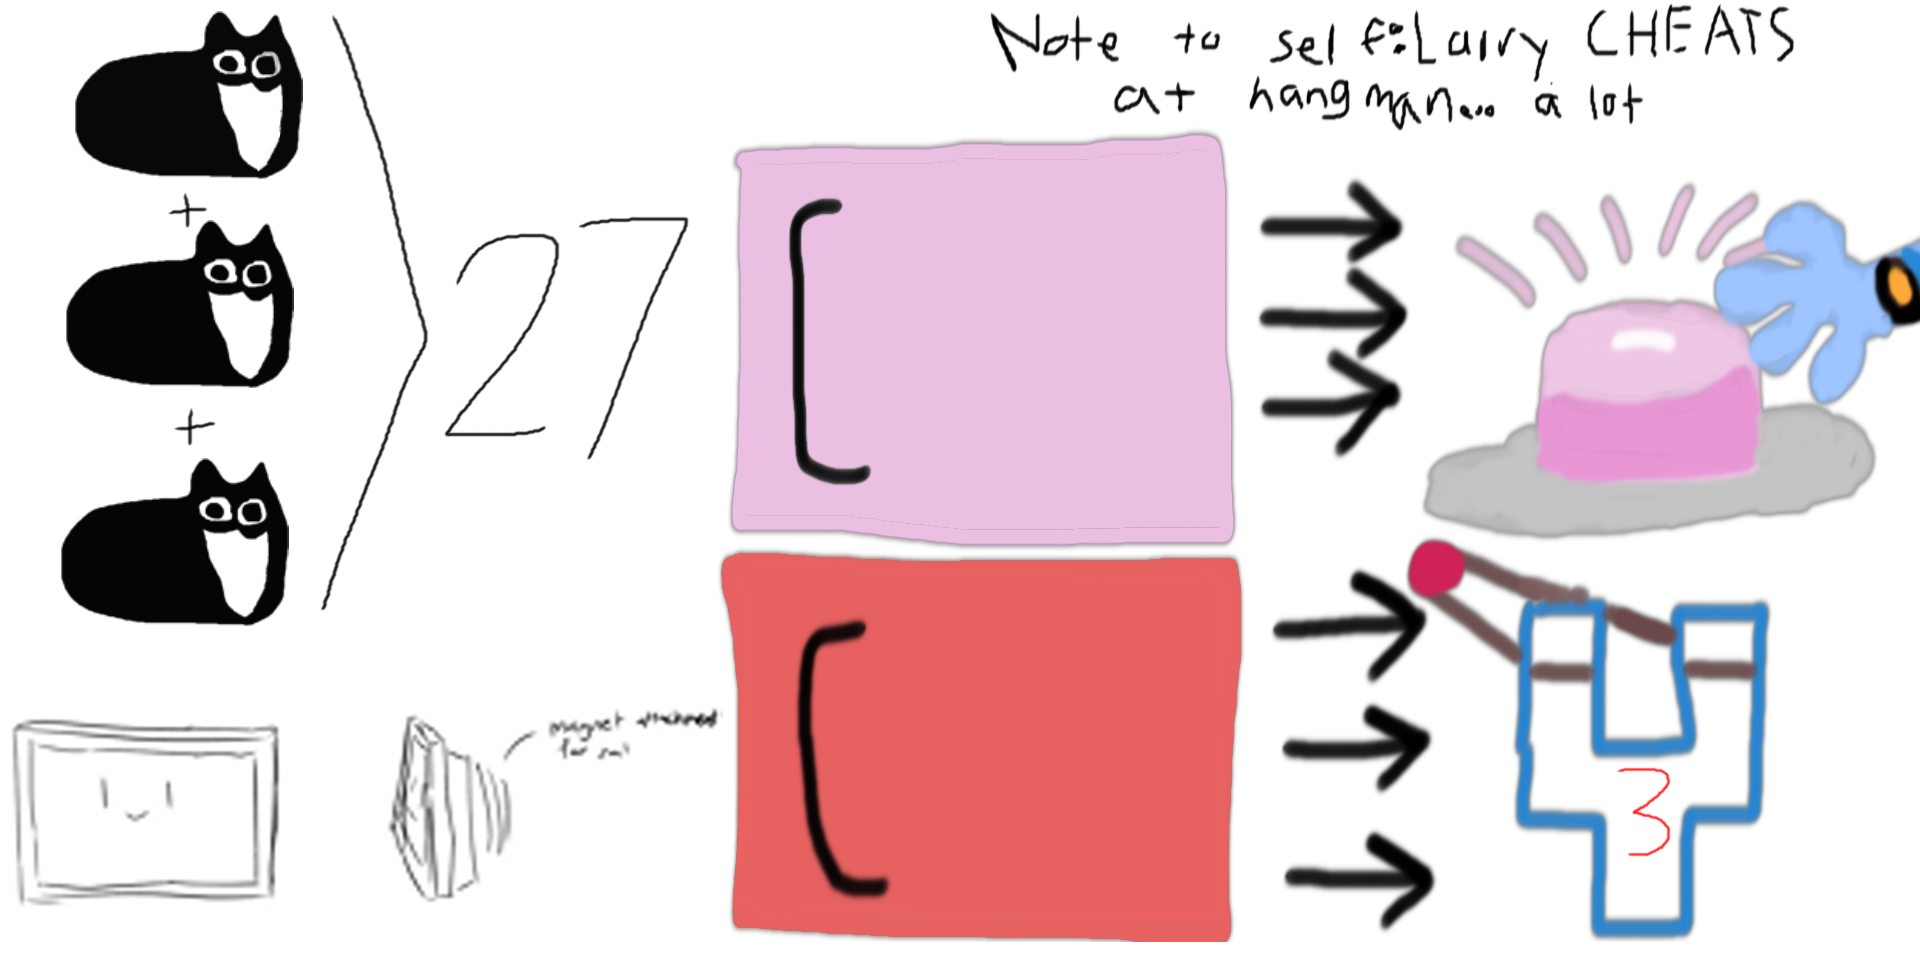 Note to self: Larry CHEATS
at hangman... a lot
+
27
+
magnet attachment
for
3